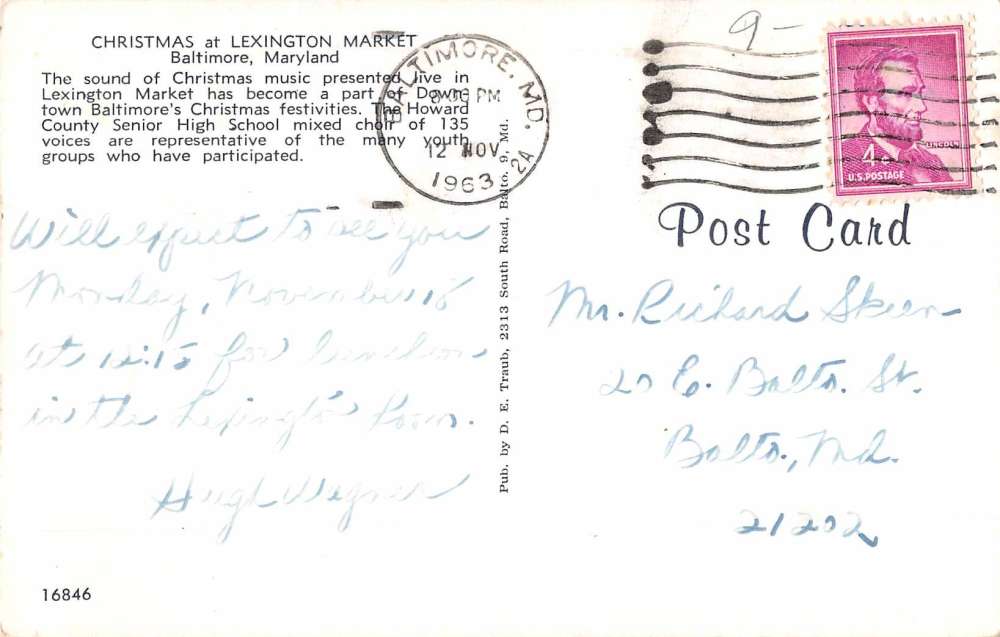 CHRISTMAS at LEXINGTON MARKET
Baltimore, Maryland
The sound of Christmas music presented live in
Lexington Market has become a part of Down-
town Baltimore's Christmas festivities. The Howard
County Senior High School mixed choir of 135
voices are representative of the many youth
groups who have participated.
Will expect to see you
Monday, November 18
at 12:15 for luncheon
in the Lexington Room.
Hugh Wegner
16846
Pub. by D. E. Traub, 2313 South Road, Balto. 9, Md.
BALTIMORE, MD.
PM
12 NOV
1963
2A
9-
4¢
LINCOLN
U.S. POSTAGE
Post Card
Mr. Richard Skeen
20 E. Balto. St.
Balto., Md.
21202